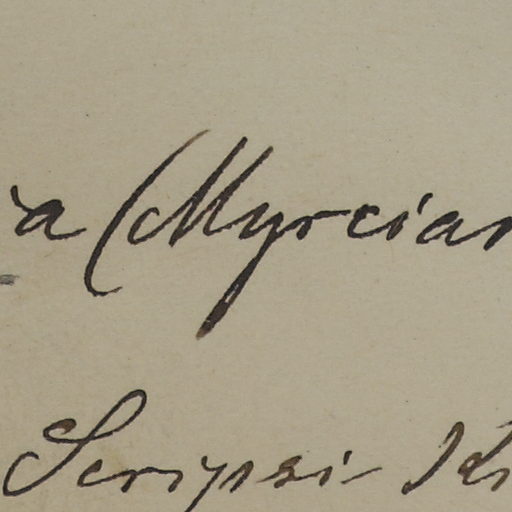 a (Myrcian
Scripsi Ki